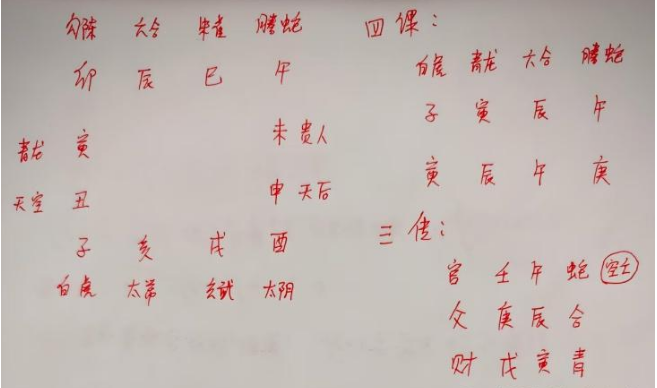 勾陈 六合 朱雀 腾蛇
卯 辰 巳 午
青龙 寅 未 贵人
天空 丑 申 天后
子 亥 戌 酉
白虎 太常 玄武 太阴
四课：
白虎 青龙 六合 腾蛇
子 寅 辰 午
寅 辰 午 庚
三传：
官 壬 午 蛇 空亡
父 庚 辰 合
财 戊 寅 青